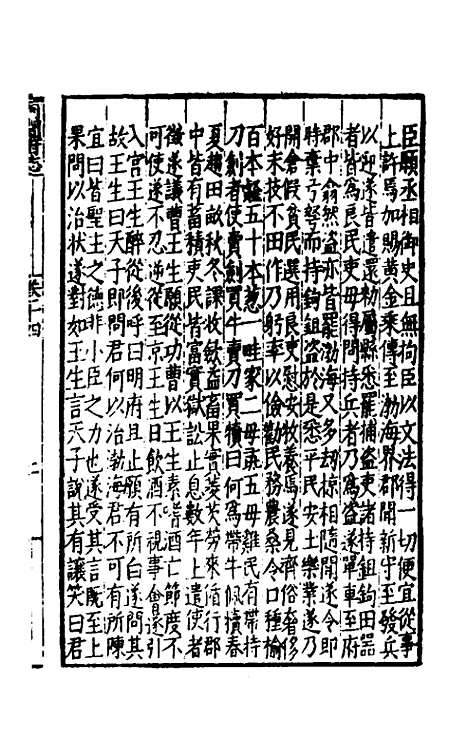 臣願丞相御史且無拘臣以文法得一切便宜從事
上許焉加賜黄金乗傳至渤海界郡聞新守至發兵
以迎遂皆遣還勑屬縣悉罷捕盗吏諸持鉏鉤田器
者皆爲良民吏毋得問持兵者乃爲盗遂單車至府
郡中翕然盗亦皆罷渤海又多刼掠相隨聞遂令即
時棄弓弩而持鉤鉏盗於是悉平民安土樂業遂乃
開倉假貧民選用良吏慰安牧養焉遂見齊俗奢侈
好末技不田作乃躬率以儉勸民務農桑令口種榆
百本䪥五十本葱一畦家二母彘五母雞民有帶持
刀劍者使賣劍買牛賣刀買犢曰何爲帶牛佩犢春
夏趨田畝秋冬課收歛益畜果實菱芡勞來循行郡
中皆有畜積吏民皆富實獄訟止息數年上遣使者
徵遂議曹王生願從功曹以王生素嗜酒亡節度不
可使遂不忍逆從至京王生日飲酒不視事會遂引
入宫王生醉從後呼曰明府且止願有所白遂問其
故王生曰天子即問君何以治渤海君不可有所陳
宜曰皆聖主之德非小臣之力也遂受其言既至上
果問以治狀遂對如王生言天子說其有讓笑曰君
卷二十四